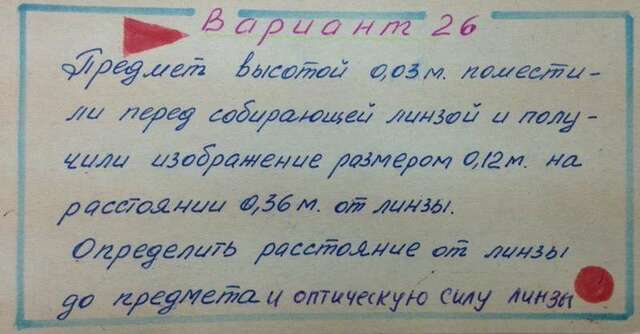 Вариант 26
Предмет высотой 0,03 м. помести-
ли перед собирающей линзой и полу-
чили изображение размером 0,12 м. на
расстоянии 0,36 м. от линзы.
Определить расстояние от линзы
до предмета и оптическую силу линзы